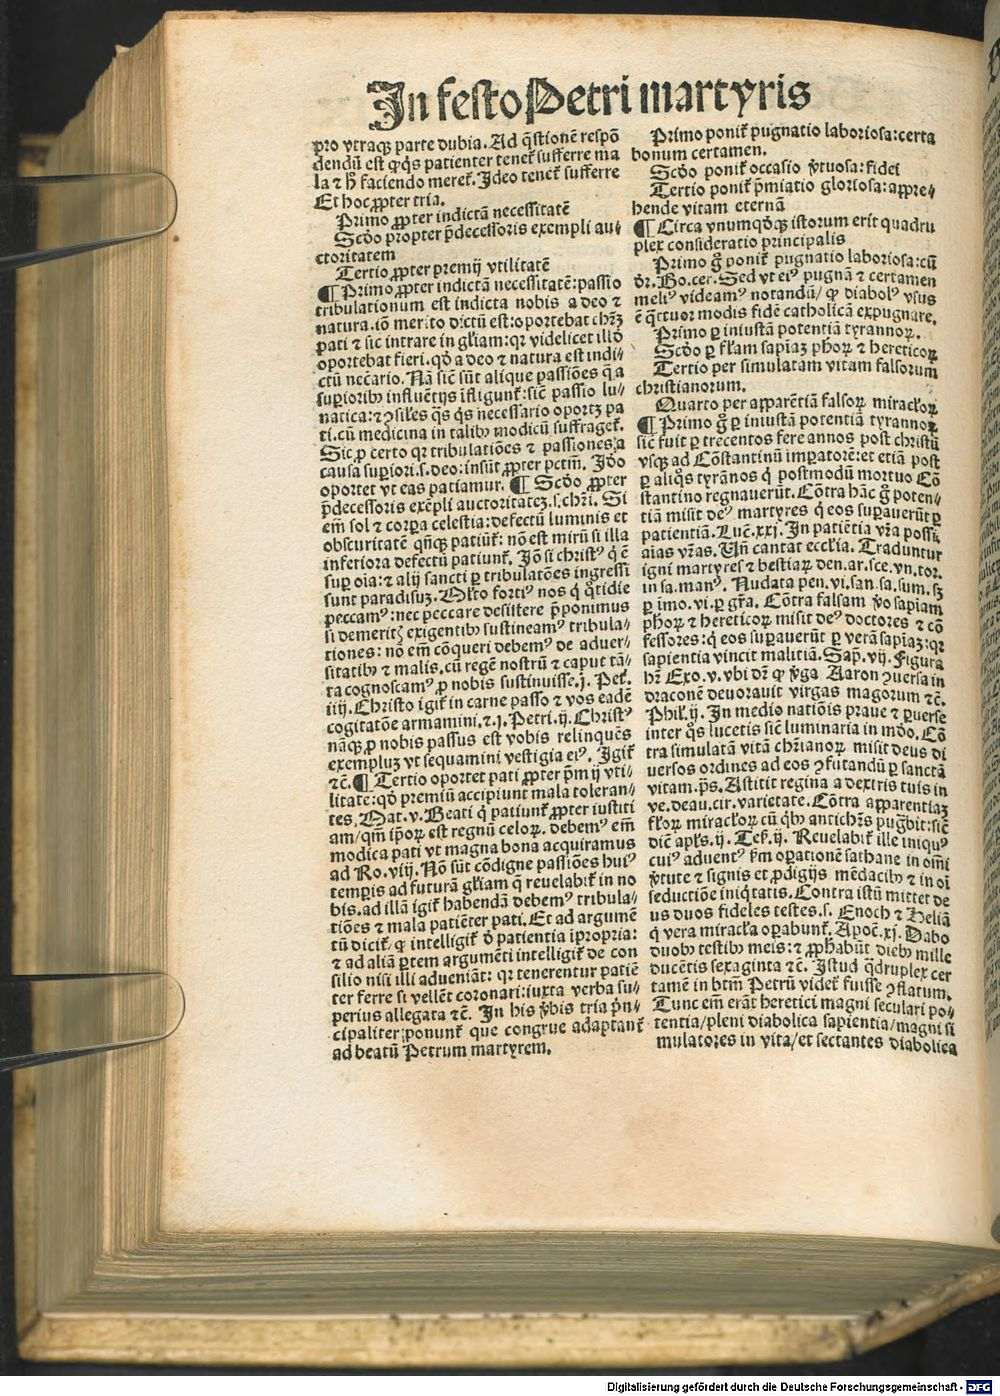 In festo Petri martyris
pro vtraqꝫ parte dubia. Ad q̄stionē respō
dendū est ꝙ qs patienter tenet᷑ sufferre ma
la ⁊ hͦ faciendo meret᷑. Ideo tenet᷑ sufferre
Et hoc ꝓpter tria.
Primo ꝓpter indictā necessitatē
Scd̄o propter p̄decessoris exempli au⸗
ctoritatem
Tertio ꝓpter premij vtilitatē
¶ Primo ꝓpter indictā necessitatē: passio
tribulationum est indicta nobis a deo ⁊
natura. iō merito dictū est: oportebat chr̄ꝫ
pati ⁊ sic intrare in gl̄iam: qꝛ videlicet illd̄
oportebat fieri. qd̄ a deo ⁊ natura est indi⸗
ctū nec̄ario. Nā sic̄ sūt alique passiōes q̄ a
suꝑioribꝰ influētijs īfligunt᷑: sic̄ passio lu⸗
natica: ⁊ ꝯsil̄es q̄s q̄s necessario oportꝫ pa
ti. cū medicina in talibꝰ modicū suffraget᷑.
Sic ꝓ certo qꝛ tribulatiōes ⁊ passiones a
causa suꝑiori .s. deo: insūt ꝓpter pctm̄. Id̄o
oportet vt eas patiamur. ¶ Scd̄o ꝓpter
p̄decessoris exēpli auctoritateꝫ .s. chr̄i. Si
em̄ sol ⁊ corꝑa celestia: defectū luminis et
obscuritatē qn̄qꝫ patiūt᷑: nō est mirū si illa
inferiora defectū patiunt᷑. Iō si christꝰ q̇ ē
suꝑ oīa: ⁊ alij sancti ꝑ tribulatōes ingressi
sunt paradisuꝫ. Ml̄to fortiꝰ nos q̇ q̇tidie
peccamꝰ: nec peccare desistere p̄ponimus
si demeritꝭ exigentibꝰ sustineamꝰ tribula⸗
tiones: nō em̄ cōqueri debemꝰ de aduer⸗
sitatibꝰ ⁊ malis. cū regē nostrū ⁊ caput tā⸗
ta cognoscamꝰ ꝓ nobis sustinuisse. j. Pet᷑.
iiij. Christo igit᷑ in carne passo ⁊ vos eadē
cogitatōe armamini. ⁊ .j. Petri. ij. Christꝰ
nāqꝫ ꝓ nobis passus est vobis relinquēs
exempluꝫ vt sequamini vestigia eiꝰ. Igit᷑
⁊c̄. ¶ Tertio oportet pati ꝓpter p̄mij vti⸗
litatē: qd̄ premiū accipiunt mala toleran⸗
tes. Mat. v. Beati q̇ patiunt᷑ ꝓpter iustiti
am/ qm̄ ip̄oꝝ est regnū celoꝝ. debemꝰ em̄
modica pati vt magna bona acquiramus
ad Ro. viij. Nō sūt cōdigne passiōes huiꝰ
temꝑis ad futurā gl̄iam q̄ reuelabit᷑ in no
bis. ad illā igit᷑ habendā debemꝰ tribula⸗
tiōes ⁊ mala patiēter pati. Et ad argumē
tū dicit᷑ ꝙ intelligit᷑ d̄ patientia īpropria:
⁊ ad aliā ꝑtem argumēti intelligit᷑ de con
silio nisi illi adueniāt: qꝛ tenerentur patiē
ter ferre si vellēt coronari: iuxta verba su⸗
perius allegata ⁊c̄. In his v̄bis tria p̄n⸗
cipaliter ponunt᷑ que congrue adaptant᷑
ad beatū Petrum martyrem.
Primo ponit᷑ pugnatio laboriosa: certa
bonum certamen.
Scd̄o ponit᷑ occasio v̄tuosa: fidei
Tertio ponit᷑ p̄miatio gloriosa: appre⸗
hende vitam eternā
¶ Circa vnumqd̄qꝫ istorum erit quadru
plex consideratio principalis
Primo gͦ ponit᷑ pugnatio laboriosa: cū
dr̄. Bo. cer. Sed vt eiꝰ pugnā ⁊ certamen
meliꝰ videamꝰ notandū/ ꝙ diabolꝰ vsus
ē q̄ttuor modis fidē catholicā expugnare.
Primo ꝑ iniustā potentiā tyrannoꝝ.
Scd̄o ꝑ fl̄am sapīaꝫ ph̄oꝝ ⁊ hereticoꝝ
Tertio per simulatam vitam falsorum
christianorum.
Quarto per apparētiā falsoꝝ mirac̄loꝝ
¶ Primo gͦ ꝑ iniustā potentiā tyrannoꝝ
sic̄ fuit ꝑ trecentos fere annos post christū
vsqꝫ ad Cōstantinū imperatorē: et etiā post
ꝑ aliq̄s tyrānos q̇ postmodū mortuo Cō
stantino regnauerūt. Cōtra hāc gͦ poten⸗
tiā misit deꝰ martyres q̇ eos suꝑauerūt ꝑ
patientiā. Luc̄. xxj. In patiētia vr̄a possi.
aīas vr̄as. Vn̄ cantat eccl̄ia. Traduntur
igni martyres ⁊ bestiaꝝ den. ar. sce. vn. tor.
in sa. manꝰ. Nudata pen. vi. san. sa. sum. sꝫ
ꝑ īmo. vi. ꝑ gr̄a. Cōtra falsam v̄o sapīam
ph̄oꝝ ⁊ hereticoꝝ misit deꝰ doctores ⁊ cō
fessores: q̇ eos suꝑauerūt ꝑ verā sapīaꝫ: qꝛ
sapientia vincit malitiā. Sap̄. vij. Figura
hr̄ Exo. v. vbi dr̄ ꝙ v̄ga Aaron ꝯuersa in
draconē deuorauit virgas magorum ⁊c̄.
Phil̄. ij. In medio natiōis praue ⁊ ꝑuerse
inter q̄s lucetis sic̄ luminaria in mūdo. Cō
tra simulatā vitā chr̄ianoꝝ misit deus di
uersos ordines ad eos ꝯfutandū ꝑ sanctā
vitam. p̄s. Astitit regina a dextris tuis in
ve. deau. cir. varietate. Cōtra apparentiaꝫ
fl̄oꝝ mirac̄loꝝ cū qbꝰ antichr̄s pugbit: sic̄
dic̄ apl̄s. ij. Tes̄. ij. Reuelabit᷑ ille iniquꝰ
cuiꝰ aduentꝰ ẜm oꝑationē sathane in om̄i
v̄tute ⁊ signis et ꝓdigijs mēdacibꝰ ⁊ in oī
seductiōe iniq̇tatis. Contra istū mittet de
us duos fideles testes .s. Enoch ⁊ Heliā
q̇ vera mirac̄la oꝑabunt᷑. Apoc̄. xj. Dabo
duobꝰ testibꝰ meis: ⁊ ꝓph̄abūt diebꝰ mille
ducētis sexaginta ⁊c̄. Istud q̄druplex cer
tamē in btm̄ Petrū videt᷑ fuisse ꝯflatum.
Tunc em̄ erāt heretici magni seculari po⸗
tentia/ pleni diabolica sapientia/ magni si
mulatores in vita/ et sectantes diabolica
Digitalisierung gefördert durch die Deutsche Forschungsgemeinschaft - DFG